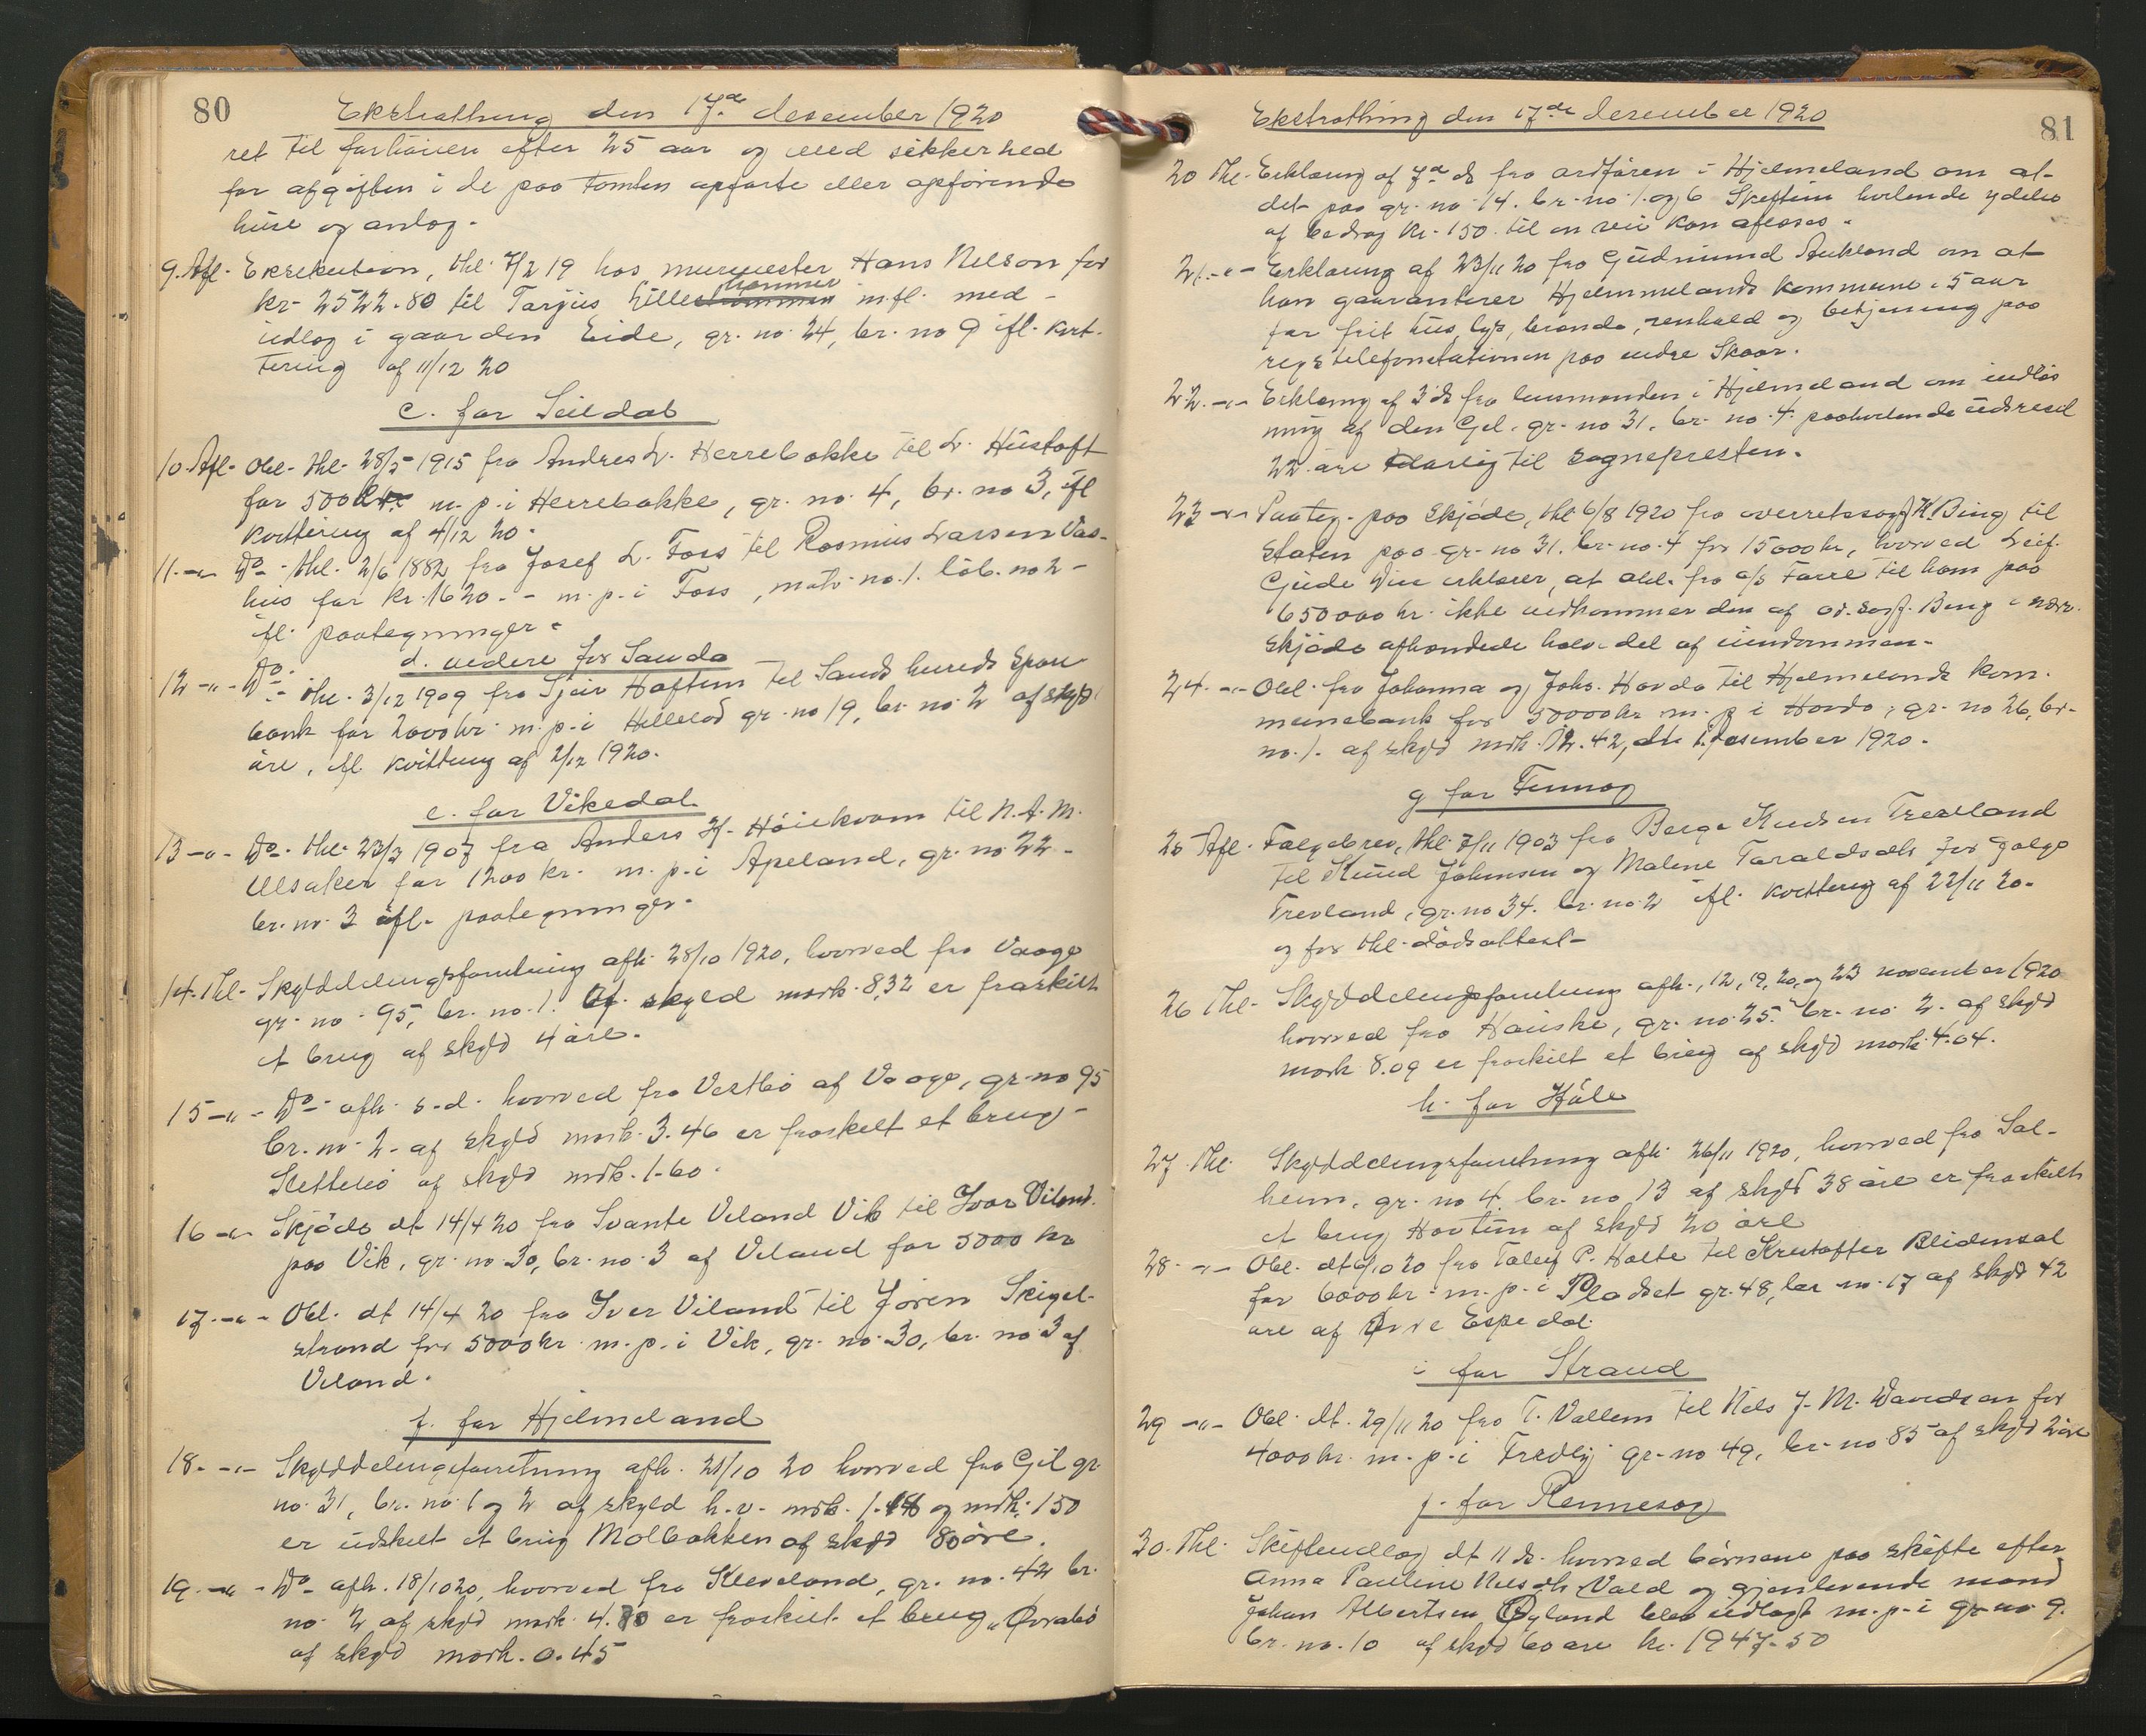 80
Ekstrathing den 17de desember 1920
ret til forhøien efter 25 aar og med sikkerhed
for afgiften i de paa tomten opførte eller opførende
huse og anlæg.
9. Afl. Exsekution, thl. 7/2 19 hos murmester Hans Nelson for
hammer
kr. 2522.80 til Tarjus Lille m.fl. med
udlæg i gaarden Eide, gr. no. 24, br. no 9 ifl. kvit-
tering af 11/12 20
c. for Suldal
10. Afl. Obl. thl. 28/5 1915 fra Andres L. Herrebakke til L. Hustoft
for 500 kr. m. p. i Herrebakke, gr. no. 4, br. no 3, ifl
kvittering af 4/12 20.
11. -"- Do. thl. 2/6 1882 fra Josef L. Foss til Rasmus Larsen Vas-
hus for kr. 1620.- m. p. i Foss, matr. no. 1. løb. no 2
ifl. paategninger.
d. videre for Sauda
12 -"- Do. thl. 3/12 1909 fra Sjur Haftun til Sands herreds Spare
bank for 2000 kr. m. p. i Hellelod gr. no 19, br. no. 2 af skyld
øre, ifl. kvittering af 2/12 1920.
e. for Vikedal
13 -"- Do. thl. 23/3 1907 fra Anders H. Høiekvam til N. A. M.
Ulsaker for 1200 kr. m. p. i Apeland, gr. no 22
br. no. 3 ifl. paategninger.
14. Thl. Skylddelingsforretning afh. 28/10 1920, hvorved fra Vaage
gr. no. 95, br. no. 1. Af skyld mark 8,32 er fraskilt
et brug af skyld 4 øre.
15 -"- Do. afh. s.d. hvorved fra Vestbø af Vaage, gr. no 95
br. no. 2. af skyld mark. 3.46 er fraskilt et brug
Slettebø af skyld mrk. 1.60.
16 -"- Skjøde dt 14/4 20 fra Svante Viland Vik til Ivar Viland.
paa Vik, gr. no. 30, br. no. 3 af Viland for 5000 kr
17. -"- Obl. dt 14/4 20 fra Iver Viland til Jøren Skigel-
strand for 5000 kr. m. p. i Vik, gr. no. 30, br. no. 3 af
Viland.
f. for Hjelmeland
18. -"- Skylddelingsforretning afh. 21/10 20 hvorved fra Gil gr.
no. 31, br. no. 1 og 2 af skyld h.v. mrk. 1. og mrk. 150
er udskilt et brug Molbakken af skyld 80 øre.
19. -"- Do. afh. 18/10 20, hvorved fra Kleveland, gr. no. 42 br.
no. 2 af skyld mark. 4.80 er fraskilt et brug "Øvrabø
af skyld mark. 0.45
81
Ekstrathing den 17de desember 1920
20 Thl. Erklæring af 7de ds fra ordføren i Hjelmeland om at
det paa gr. no. 14. br. no. 1. og 6 Skeftun hvilende ydelse
af bedrag kr. 150. til en vei kan afløses.
21. -"- Erklæring af 23/11 20 fra Gudmund Aukland om at
han gaaranterer Hjelmmelands kommune i 5 aar
for frit hus, lys, brænde, renhold og betjening paa
rigstelefonstationen paa indre Skaar.
22. -"- Erklæring af 3 ds fra lensmanden i Hjelmeland om indløs
ning af den Gil. gr. no 31. br. no. 4. paahvilende
22 øre aarlig til sognepresten.
23 -"- Paateg. paa skjøde, thl 6/8 1920 fra overretssagf. K. Bing til
staten paa gr. no 31. br. no. 4 for 15000 kr, hvorved Leif
Gude Vie erklærer, at obl. fra a/s Farre til ham paa
650 000 kr. ikke vedkommer den af o.r.sagf. Bing i nævn.
skjøde afhændede halvdel af eiendommen.
24. -"- Obl. fra Johanna og Johs. Havda til Hjelmelands kom.
munebank for 50000 kr m. p i Havdo, gr. no 26, br.
no. 1. af skyld mrk. 12. 42, dt 1. desember 1920.
g for Finnøy
25 Afl. Følgebrev, thl. 7/11 1903 fra Berge Knudsen Tresland
til Knud Johnsen og Malene Taraldsdtr for følge
Trevland, gr. no 34. br. no. 2 ifl. kvittering af 22/11 20.
og for thl. dødsattest
26 Thl. Skylddelingsforretning afh., 12, 19, 20, og 23 november 1920
hvorved fra Hauske, gr. no. 25. br. no. 2. af skyld
mark 8.09 er fraskilt et brug af skyld mark. 4.04.
h. for Høle
27. Thl. Skylddelingsforretning afh. 26/11 1920, hvorved fra Sol-
heim, gr. no 4, br. no 13 af skyld 38 øre er fraskilt
et brug Havtun af skyld 20 øre
28. -"- Obl. dt 6/10 20 fra Tollef P. Halte til Kristoffer Blidensol
for 6000 kr. m. p. i Pladset gr. 48, br no. 17 af skyld 42
øre af Øvre Espedal.
i for Strand
29 -"- Obl. dt. 29/11 20 fra T. Vallem til Nels J. M. Davidsen for
4000 kr. m. p. i Fredly gr. no 49, br. no 85 af skyld 2 øre
j. for Rennesøy
30. Thl. Skifteudlæg dt 11 ds. hvorved børnene paa skifte efter
Anna Pauline Nelsdtr Vald og gjenlevende mand
Johan Albertsen Øyland blev udlagt m. p. i gr. no 9.
br. no. 10 af skyld 60 øre kr. 1947.50